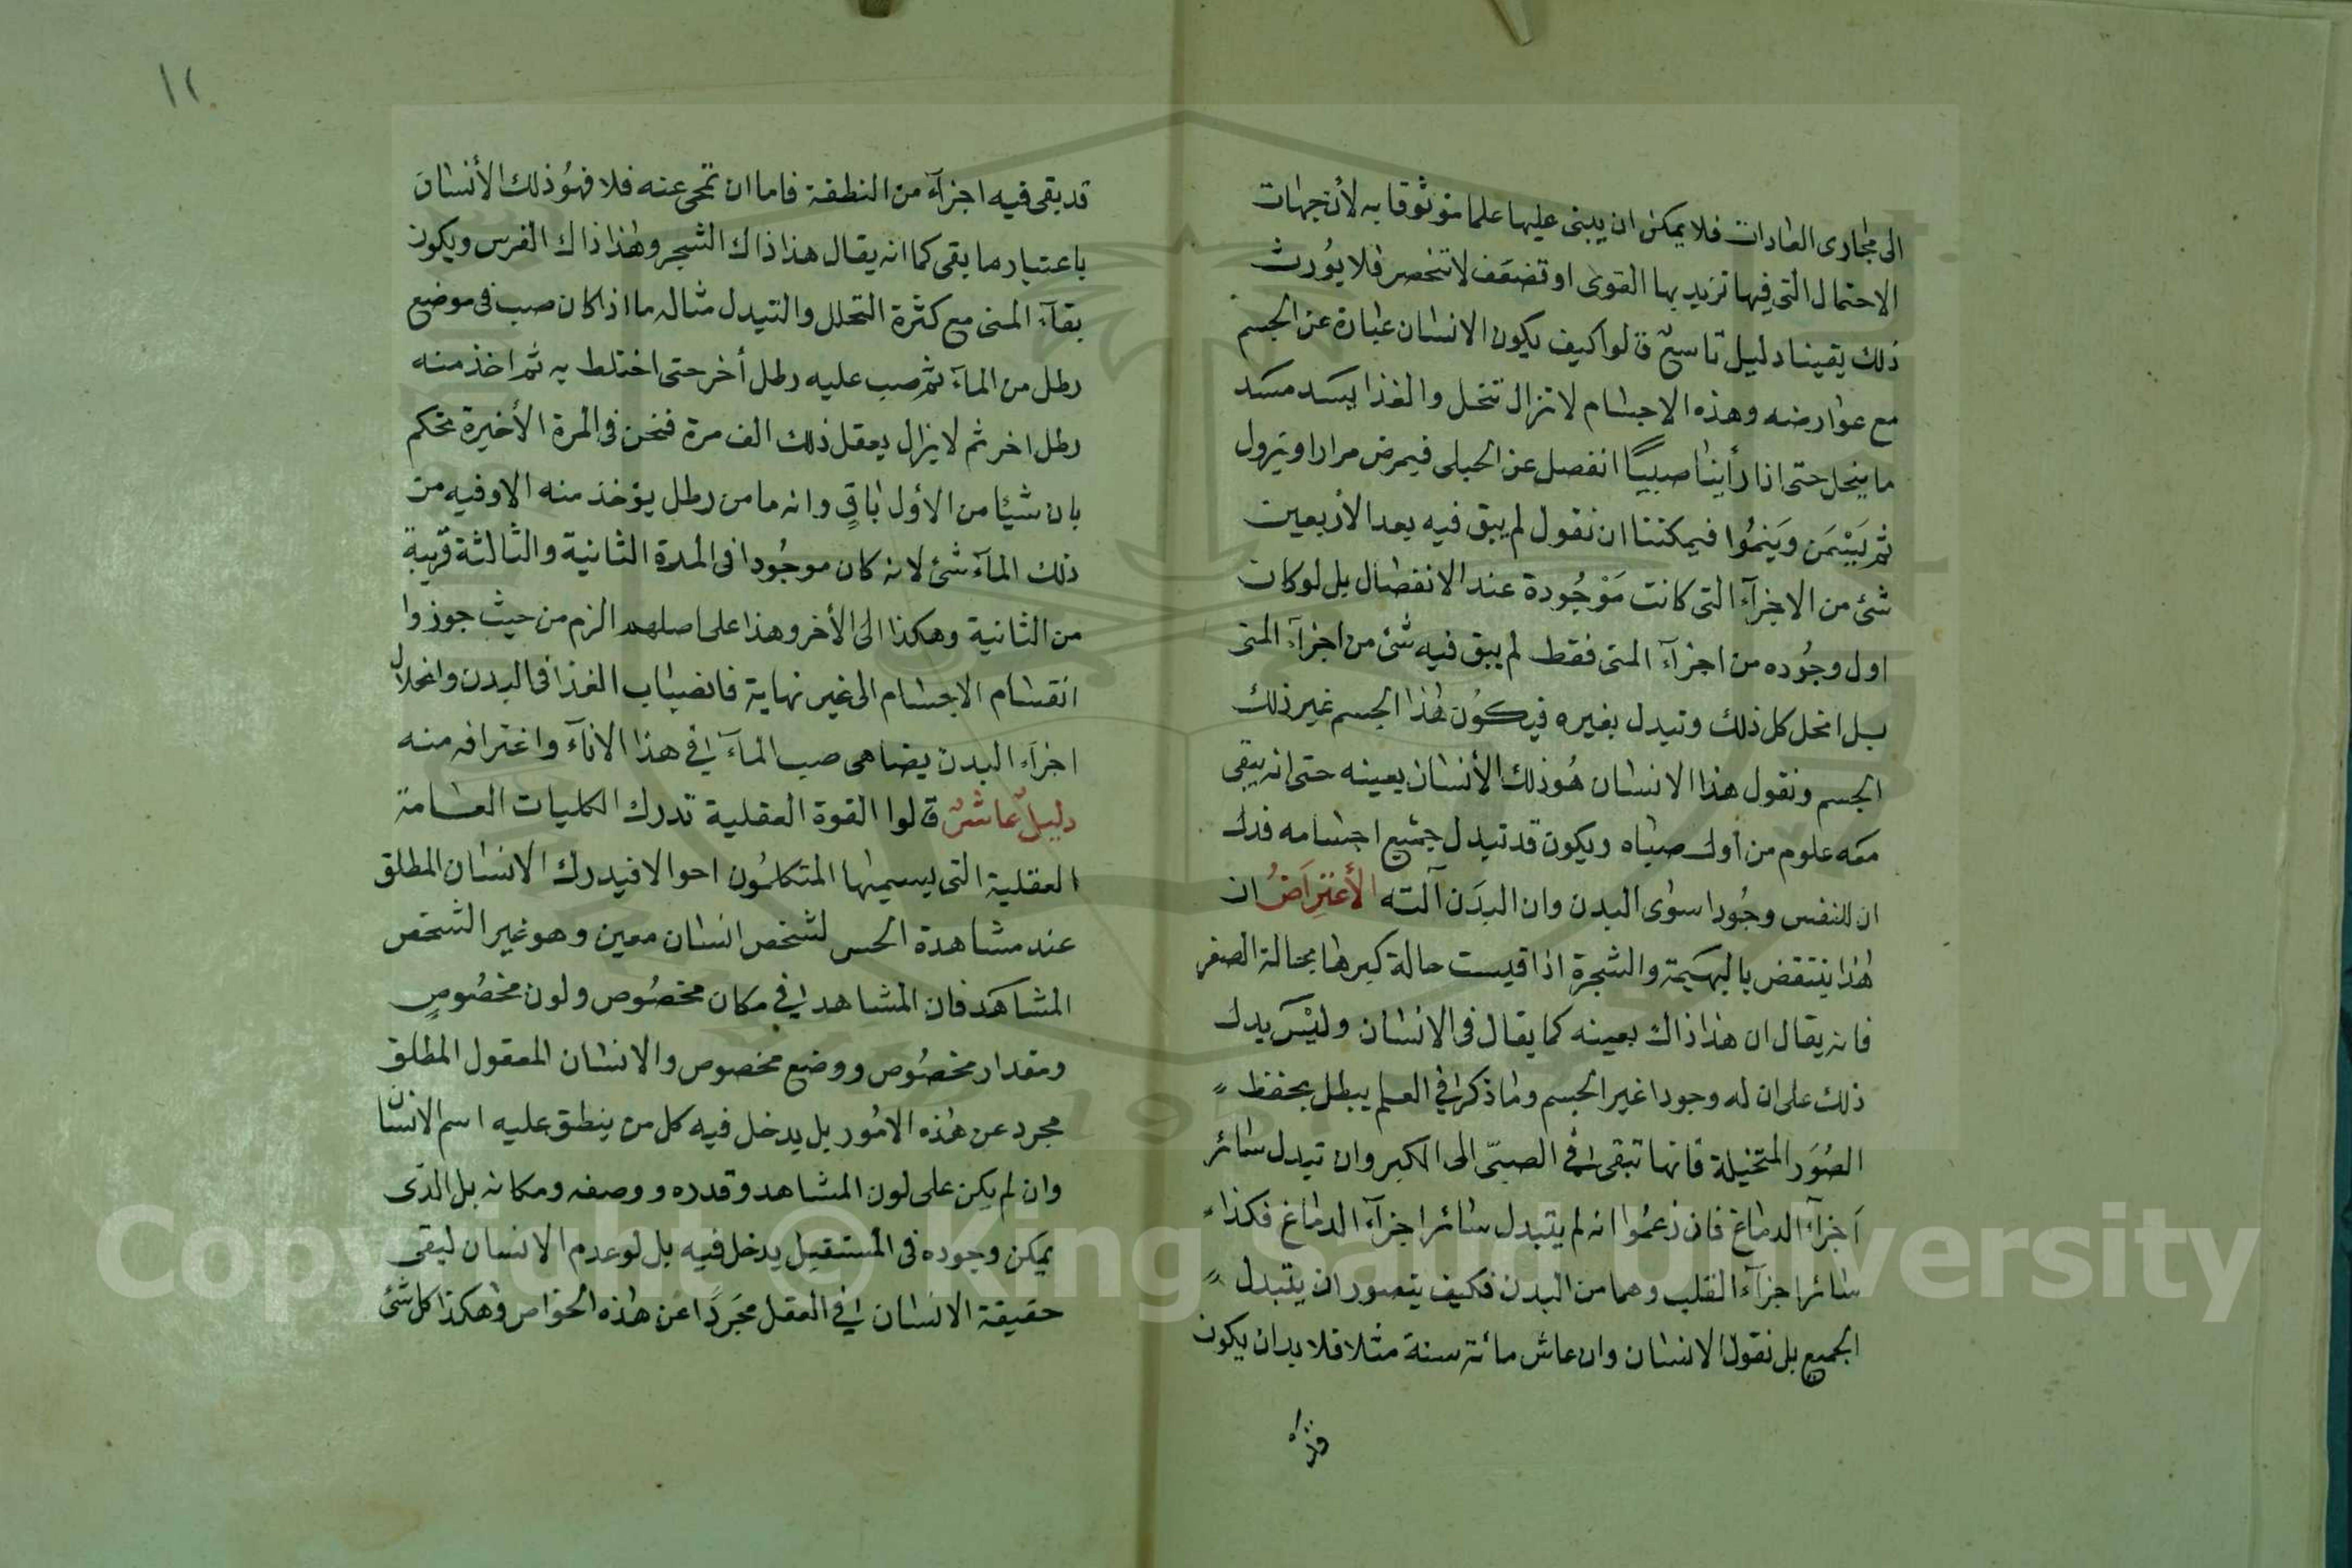 الى مجارى العادات فلا يمكن ان يبنى عليها علما موثوقا به لأن جهات
الاحتمال التى فيها تزيد بها القوى او تضعف لا تنحصر فلا يورث
ذلك يقينا دليل تاسع قالوا كيف يكون الانسان عبارة عن الجسم
مع عوارضه وهذه الاجسام لا تزال تنحل والغذا يسد مسد
ما ينحل حتى اذا رأينا صبيا انفصل عن الحبلى فيمرض مرارا ويزول
ثم يسمن وينموا فيمكننا ان نقول لم يبق فيه بعد الأربعين
شئ من الاجزآء التى كانت موجودة عند الانفصال بل لو كان
اول وجوده من اجزآء المنى فقط لم يبق فيه شئ من اجزآء المنى
بل انحل كل ذلك وتبدل بغيره فيكون هذا الجسم غير ذلك
الجسم ونقول هذا الانسان هو ذلك الأنسان بعينه حتى انه يبقى
معه علوم من أول صباه ويكون قد تبدل جميع اجسامه فدل
ان للنفس وجودا سوى البدن وان البدن آلته الأعتراض ان
هذا ينتقض بالبهيمة والشجرة اذا قيست حالة كبرها بحالة الصغر
فانه يقال ان هذا ذاك بعينه كما يقال فى الانسان وليس يدل
ذلك على ان له وجودا غير الجسم وما ذكر فى العلم يبطل بحفظ
الصور المتخيلة فانها تبقى فى الصبى الى الكبر وان تبدل سائر
أجزآء الدماغ فان زعموا انه لم يتبدل سائر اجزآء الدماغ فكذا
سائر اجزآء القلب وهما من البدن فكيف يتصور ان يتبدل
الجميع بل نقول الانسان وان عاش مائة سنة مثلا فلا بد ان يكون
١٢
قد بقى فيه اجزآء من النطفة فاما ان تمحى عنه فلا فهو ذلك الأنسان
باعتبار ما بقى كما انه يقال هذا ذاك الشجر وهذا ذاك الفرس ويكون
بقآء المنى مع كثرة التحلل والتبدل مثاله ما اذا كان صب فى موضع
رطل من المآء ثم صب عليه رطل أخر حتى اختلط به ثم اخذ منه
رطل اخر ثم لا يزال يفعل ذلك الف مرة فنحن فى المرة الأخيرة نحكم
بان شيئا من الأول باق وانه ما من رطل يؤخذ منه الا وفيه من
ذلك المآء شئ لانه كان موجودا فى المدة الثانية والثالثة قريبة
من الثانية وهكذا الى الأخر وهذا على اصلهم الزم من حيث جوزوا
انقسام الاجسام الى غير نهاية فانصباب الغذا فى البدن وانحلال
اجزاء البدن يضاهى صب المآء فى هذا الانآء واغترافه منه
دليل عاشر قالوا القوة العقلية تدرك الكليات العامة
العقلية التى يسميها المتكلمون احوالا فيدرك الانسان المطلق
عند مشاهدة الحس لشخص انسان معين وهو غير الشخص
المشاهد فان المشاهد فى مكان مخصوص ولون مخصوص
ومقدار مخصوص ووضع مخصوص والانسان المعقول المطلق
مجرد عن هذه الامور بل يدخل فيه كل من ينطق عليه اسم الانسان
وان لم يكن على لون المشاهد وقدره ووصفه ومكانه بل الذى
يمكن وجوده فى المستقبل يدخل فيه بل لو عدم الانسان ليقى
حقيقة الانسان فى العقل مجردا عن هذه الخواص وهكذا كل شئ
Copyright © King Saud University